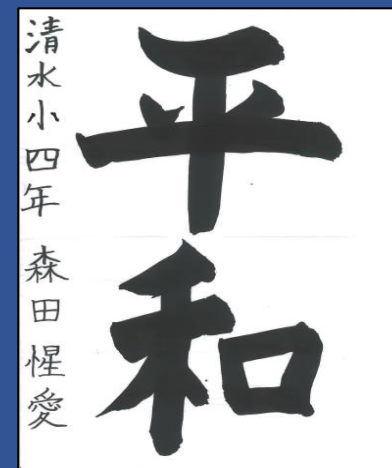 平和
清水小四年 森田惺愛